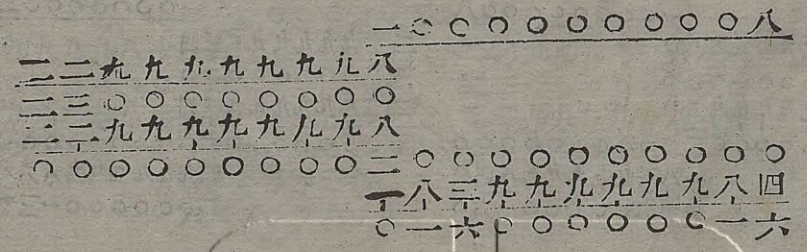 一〇〇〇〇〇〇〇〇〇八
二二九九九九九九九八
二三〇〇〇〇〇〇〇〇
二二九九九九九九九八
〇〇〇〇〇〇〇〇〇二〇〇〇〇〇〇〇〇〇〇
一八三九九九九九九八四
〇一六〇〇〇〇〇〇一六